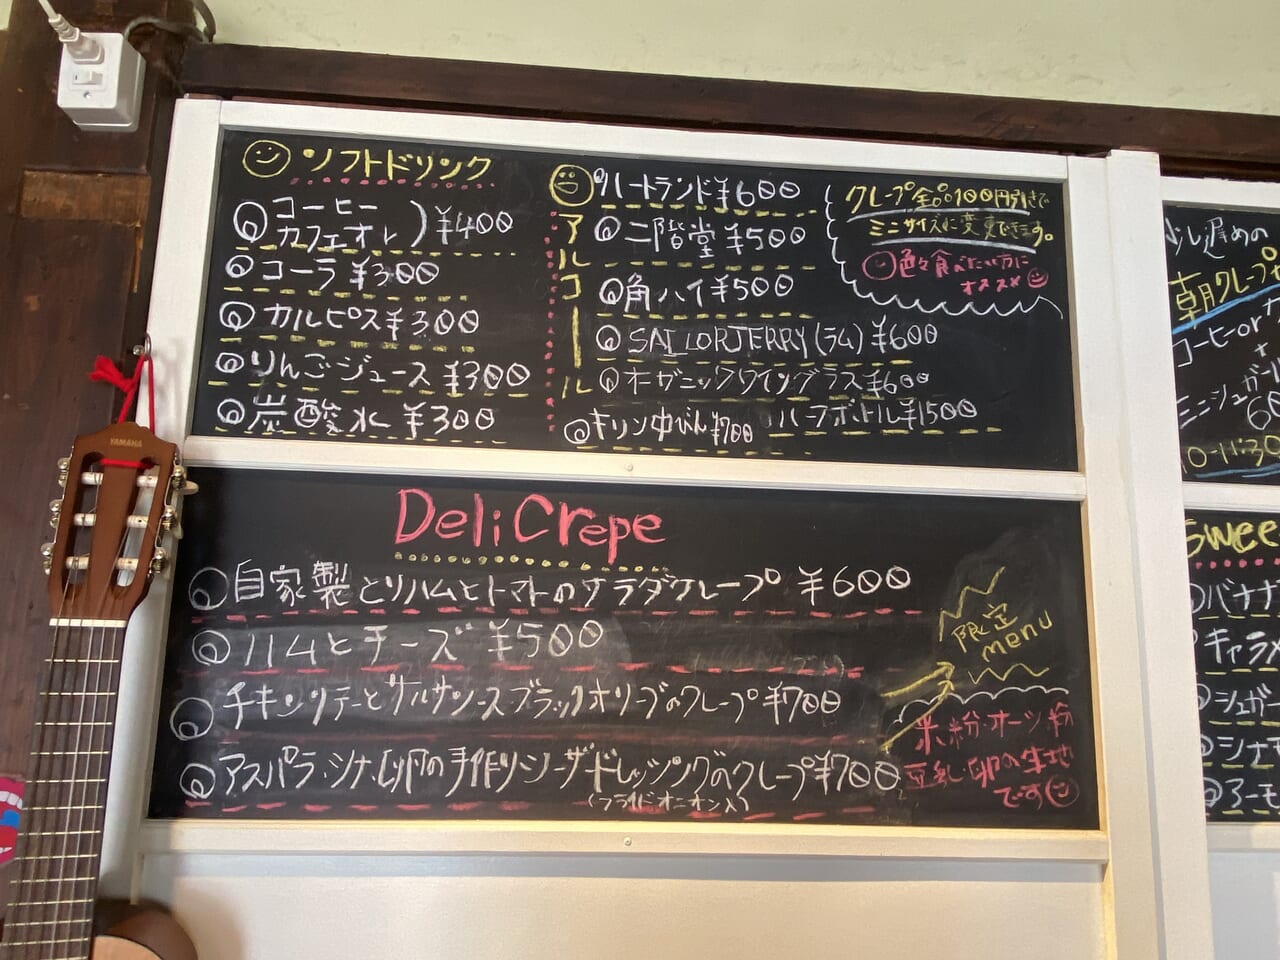 ソフトドリンク
コーヒー
カフェオレ ) ¥400
コーラ ¥300
カルピス ¥300
りんごジュース ¥300
炭酸水 ¥300
アルコール
ハートランド ¥600
二階堂 ¥500
角ハイ ¥500
SAILORJERRY(ラム) ¥600
オーガニックワイングラス ¥600
ハーフボトル ¥1500
キリン中びん ¥700
クレープ全品100円引きで
ミニサイズに変更できます。
色々食べたい方に
オススメ
Deli Crepe
自家製とりハムとトマトのサラダクレープ ¥600
ハムとチーズ ¥500
チキンソテーとサルサソースブラックオリーブのクレープ ¥700
アスパラ・シナ・卵の手作りシーザードレッシングのクレープ ¥700
(フライドオニオン入)
限定
menu
米粉・オーツ粉
豆乳・卵の生地
です
遅めの
朝クレープ
コーヒーor
ミニシュガー
10-11:30
Swee
バナナ
キャラメ
シュガー
シナモ
アーモ
YAMAHA